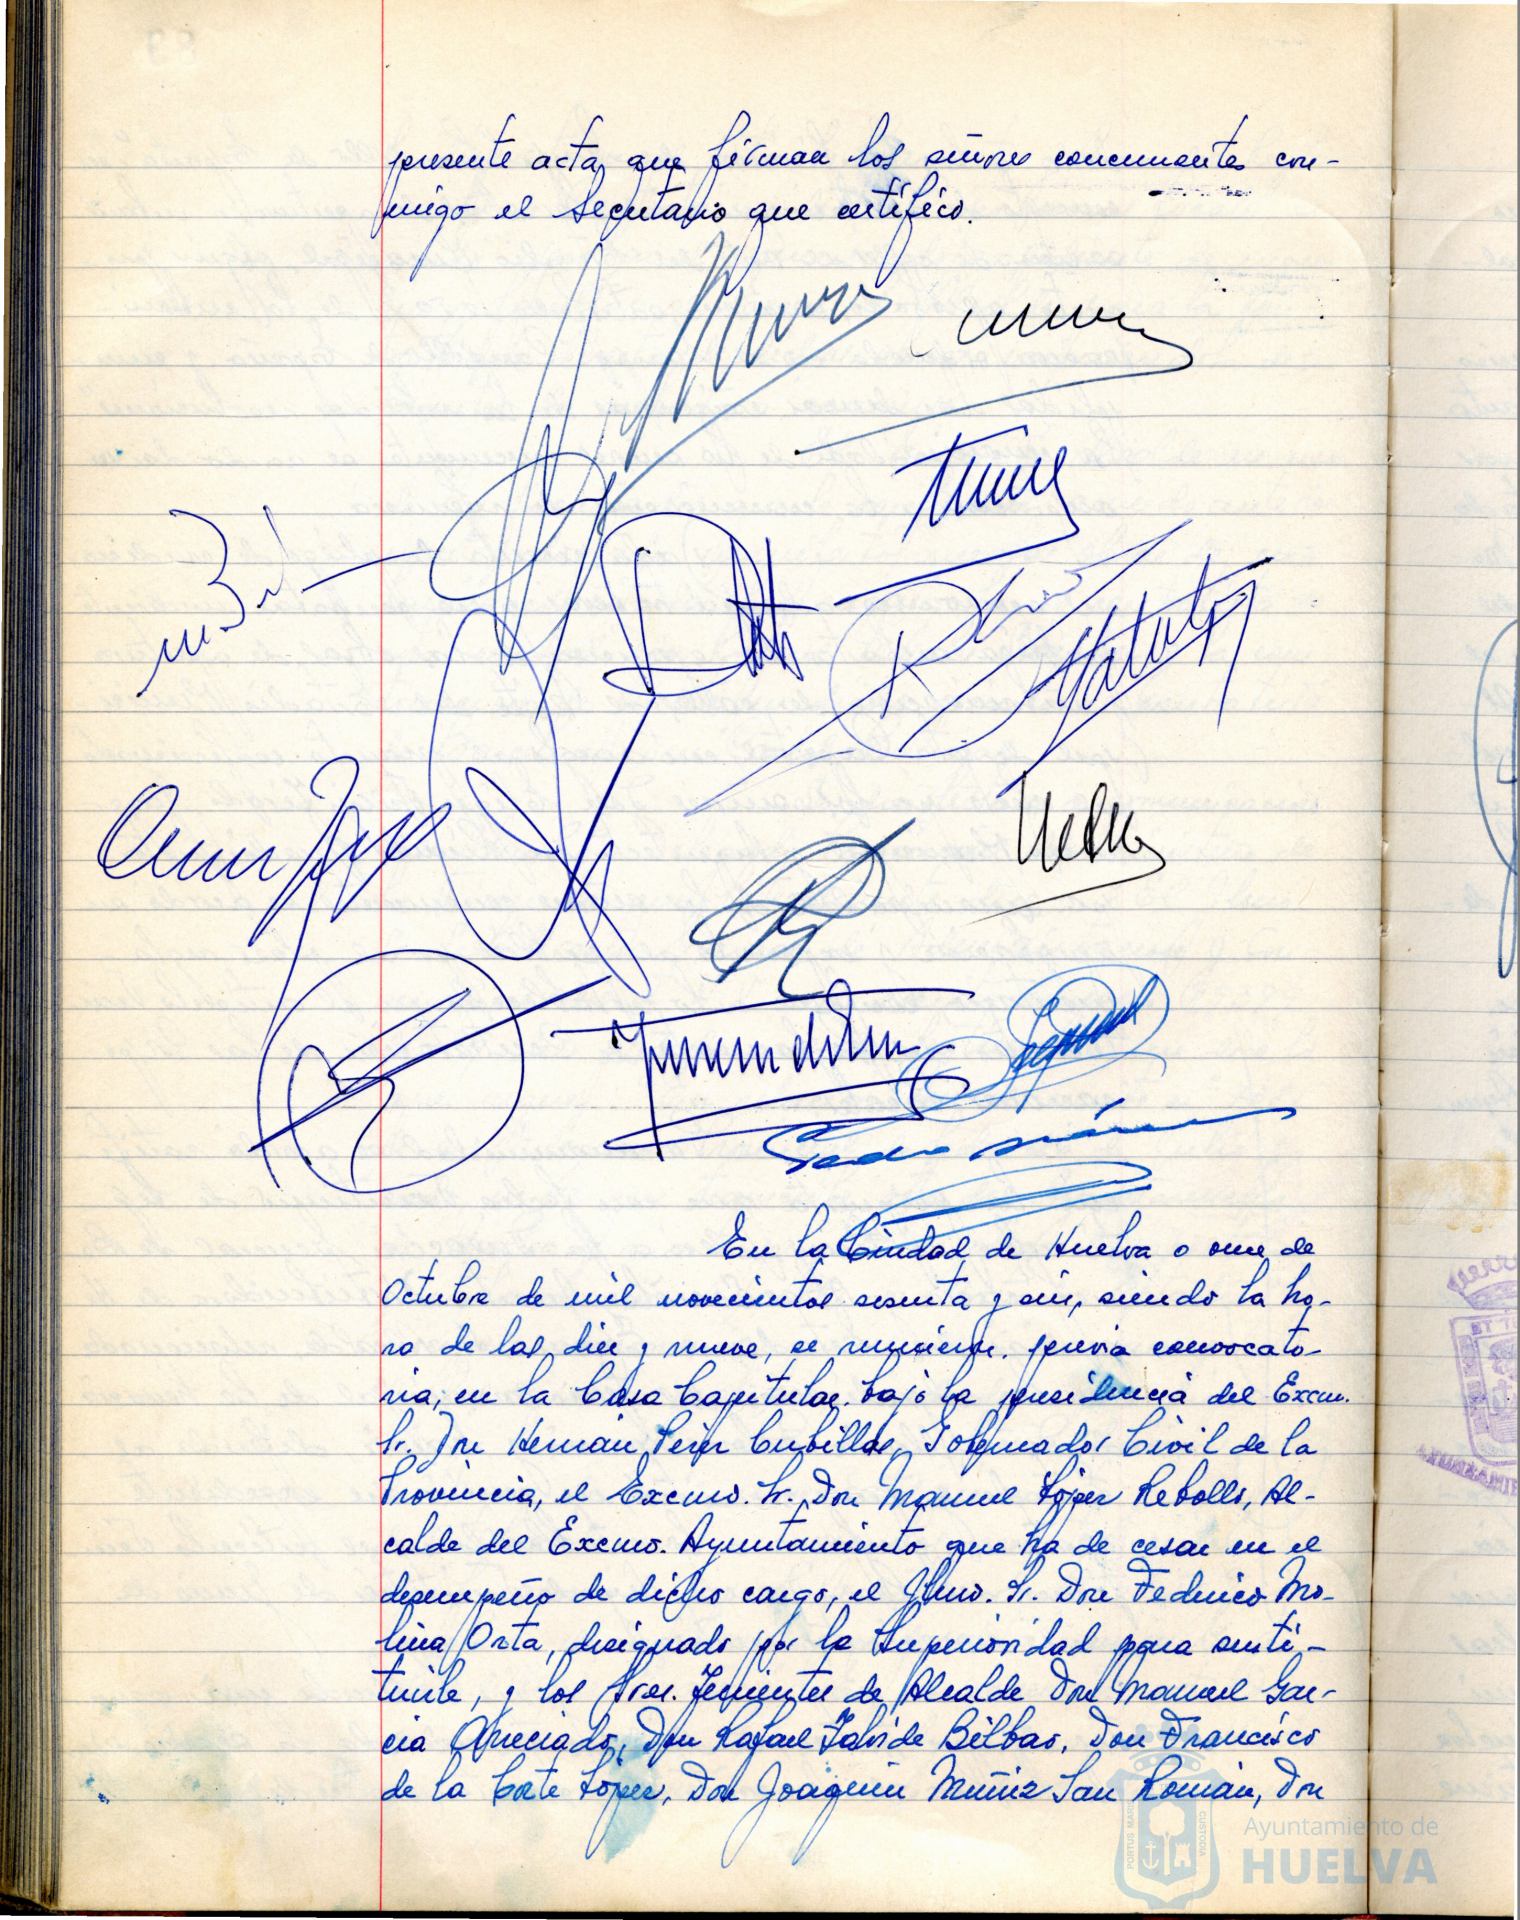 presente acta, que firman los señores concurrentes con-
migo el Secretario que certifico.
En la Ciudad de Huelva a once de
Octubre de mil novecientos sesenta y seis, siendo la ho-
ra de las diez y nueve, se reunieron, previa convocato-
ria, en la Casa Capitular, bajo la presidencia del Excmo.
Sr. Don Hernán Pérez Cubillas, Gobernador Civil de la
Provincia, el Excmo. Sr. Don Manuel López Rebollo, Al-
calde del Excmo. Ayuntamiento que ha de cesar en el
desempeño de dicho cargo, el Ilmo. Sr. Don Federico Mo-
lina Orta, designado por la Superioridad para susti-
tuirle, y los Sres. Tenientes de Alcalde Don Manuel Gar-
cia Don Rafael Bilbao, Don Francisco
de la Corte López, Don Joaquin Muñiz San Román, Don
PORTUS MARIS
CUSTODIA
Ayuntamiento de
HUELVA